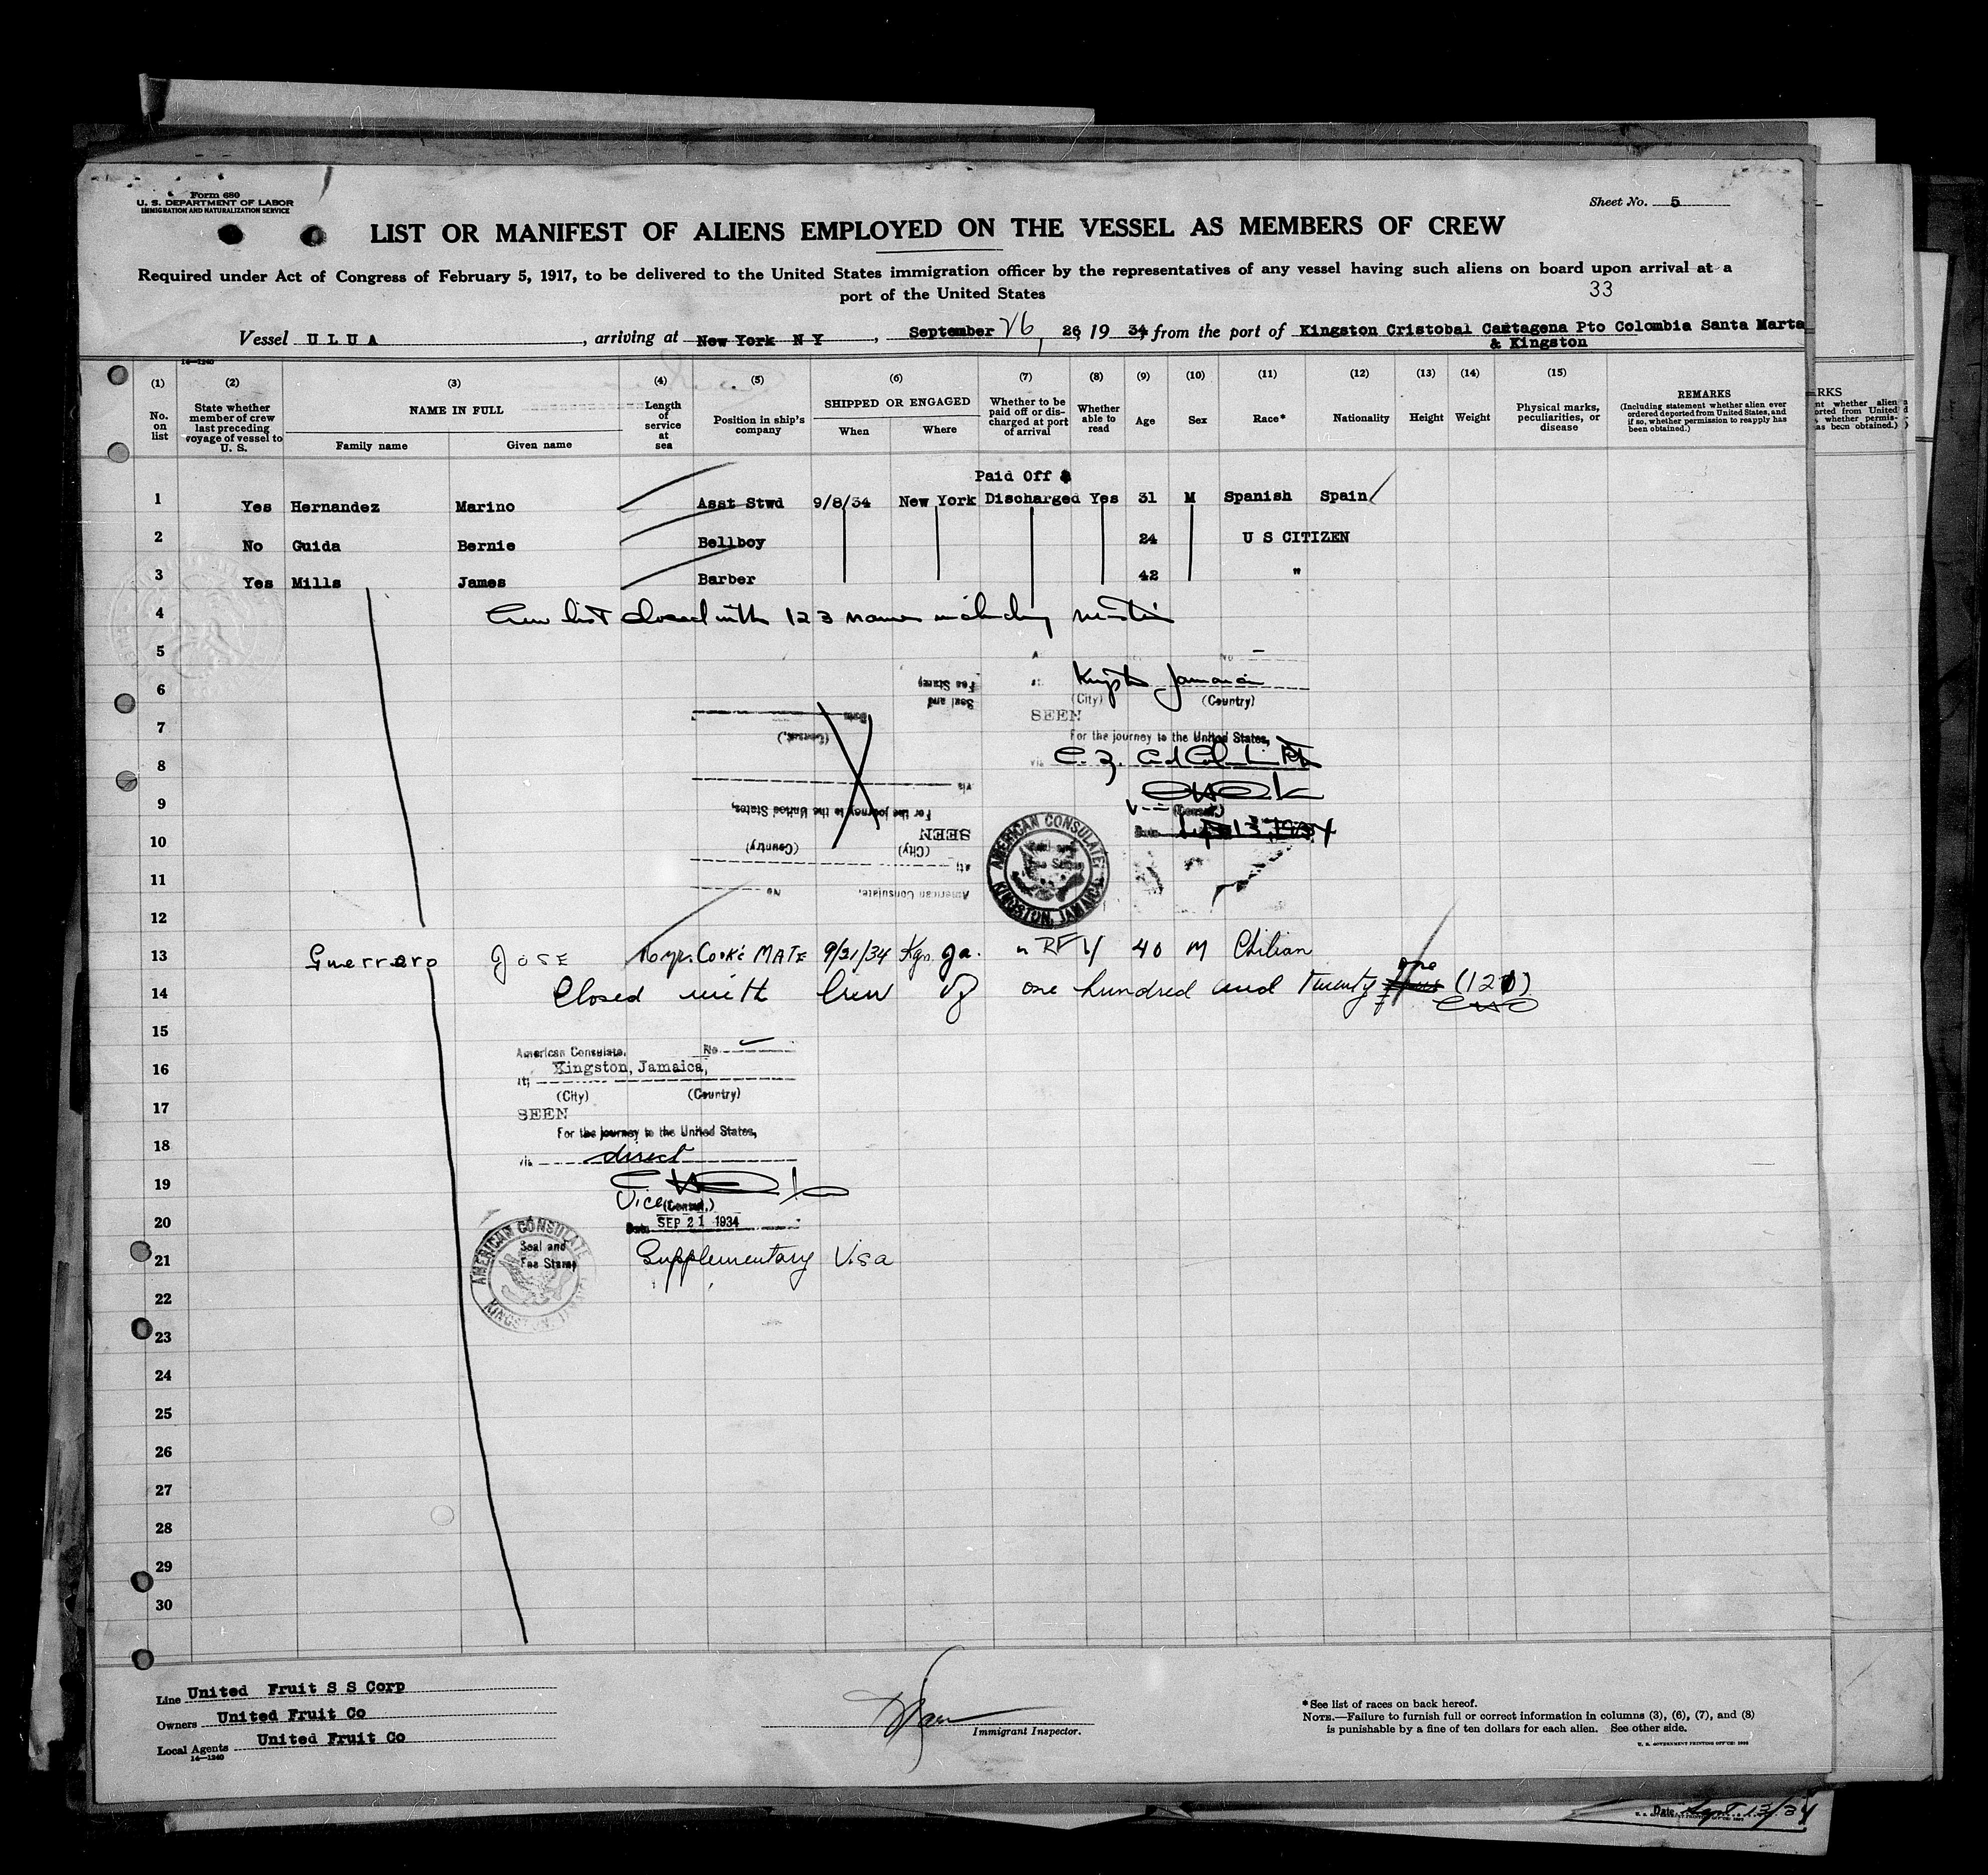 Form 680
U. S. DEPARTMENT OF LABOR
IMMIGRATION AND NATURALIZATION SERVICE
Sheet No. 5
LIST OR MANIFEST OF ALIENS EMPLOYED ON THE VESSEL AS MEMBERS OF CREW
Required under Act of Congress of February 5, 1917, to be delivered to the United States immigration officer by the representatives of any vessel having such aliens on board upon arrival at a
port of the United States
33
Vessel U L U A, arriving at New York N Y, September 26, 26, 19 34, from the port of Kingston Cristobal Cartagena Pto Colombia Santa Marta
& Kingston
14—1240
(1) (2) (3) (4) (5) (6) (7) (8) (9) (10) (11) (12) (13) (14) (15)
No. on list
State whether member of crew last preceding voyage of vessel to U. S.
NAME IN FULL
Family name
Given name
Length of service at sea
Position in ship's company
SHIPPED OR ENGAGED
When
Where
Whether to be paid off or discharged at port of arrival
Whether able to read
Age
Sex
Race*
Nationality
Height
Weight
Physical marks, peculiarities, or disease
REMARKS
(Including statement whether alien ever ordered deported from United States, and if so, whether permission to reapply has been obtained.)
Paid Off &
1 Yes Hernandez Marino Asst Stwd 9/8/34 New York Discharged Yes 31 M Spanish Spain
2 No Guida Bernie Bellboy 24 U S CITIZEN
3 Yes Mills James Barber 42 "
4 Crew list closed with 123 names including master
5
6
7
8
9
10
11
12
Kingston Jamaica
(City) (Country)
SEEN
For the journey to the United States,
(Consul.)
Date Sept 13, 1934
AMERICAN CONSULATE
KINGSTON, JAMAICA
American Consulate, No
At
(City) (Country)
SEEN
For the journey to the United States,
via
(Consul.)
Date
Seal and
Fee Stamp
13 Guerrero JOSE 10 yr. COOK'S MATE 9/21/34 Kgn. Ja. 40 M Chilian
14 Closed with Crew of one hundred and twenty one (121)
15
16
17
18
19
20
21
22
23
24
25
26
27
28
29
30
American Consulate, No
At Kingston, Jamaica,
(City) (Country)
SEEN
For the journey to the United States,
via direct
Vice (Consul.)
Date SEP 21 1934
AMERICAN CONSULATE
Seal and
Fee Stamp
KINGSTON, JAMAICA
Supplementary Visa
Line United Fruit S S Corp
Owners United Fruit Co
Local Agents United Fruit Co
14—1240
Immigrant Inspector.
*See list of races on back hereof.
NOTE.—Failure to furnish full or correct information in columns (3), (6), (7), and (8)
is punishable by a fine of ten dollars for each alien. See other side.
U. S. GOVERNMENT PRINTING OFFICE: 1933
Date Sept 13/34